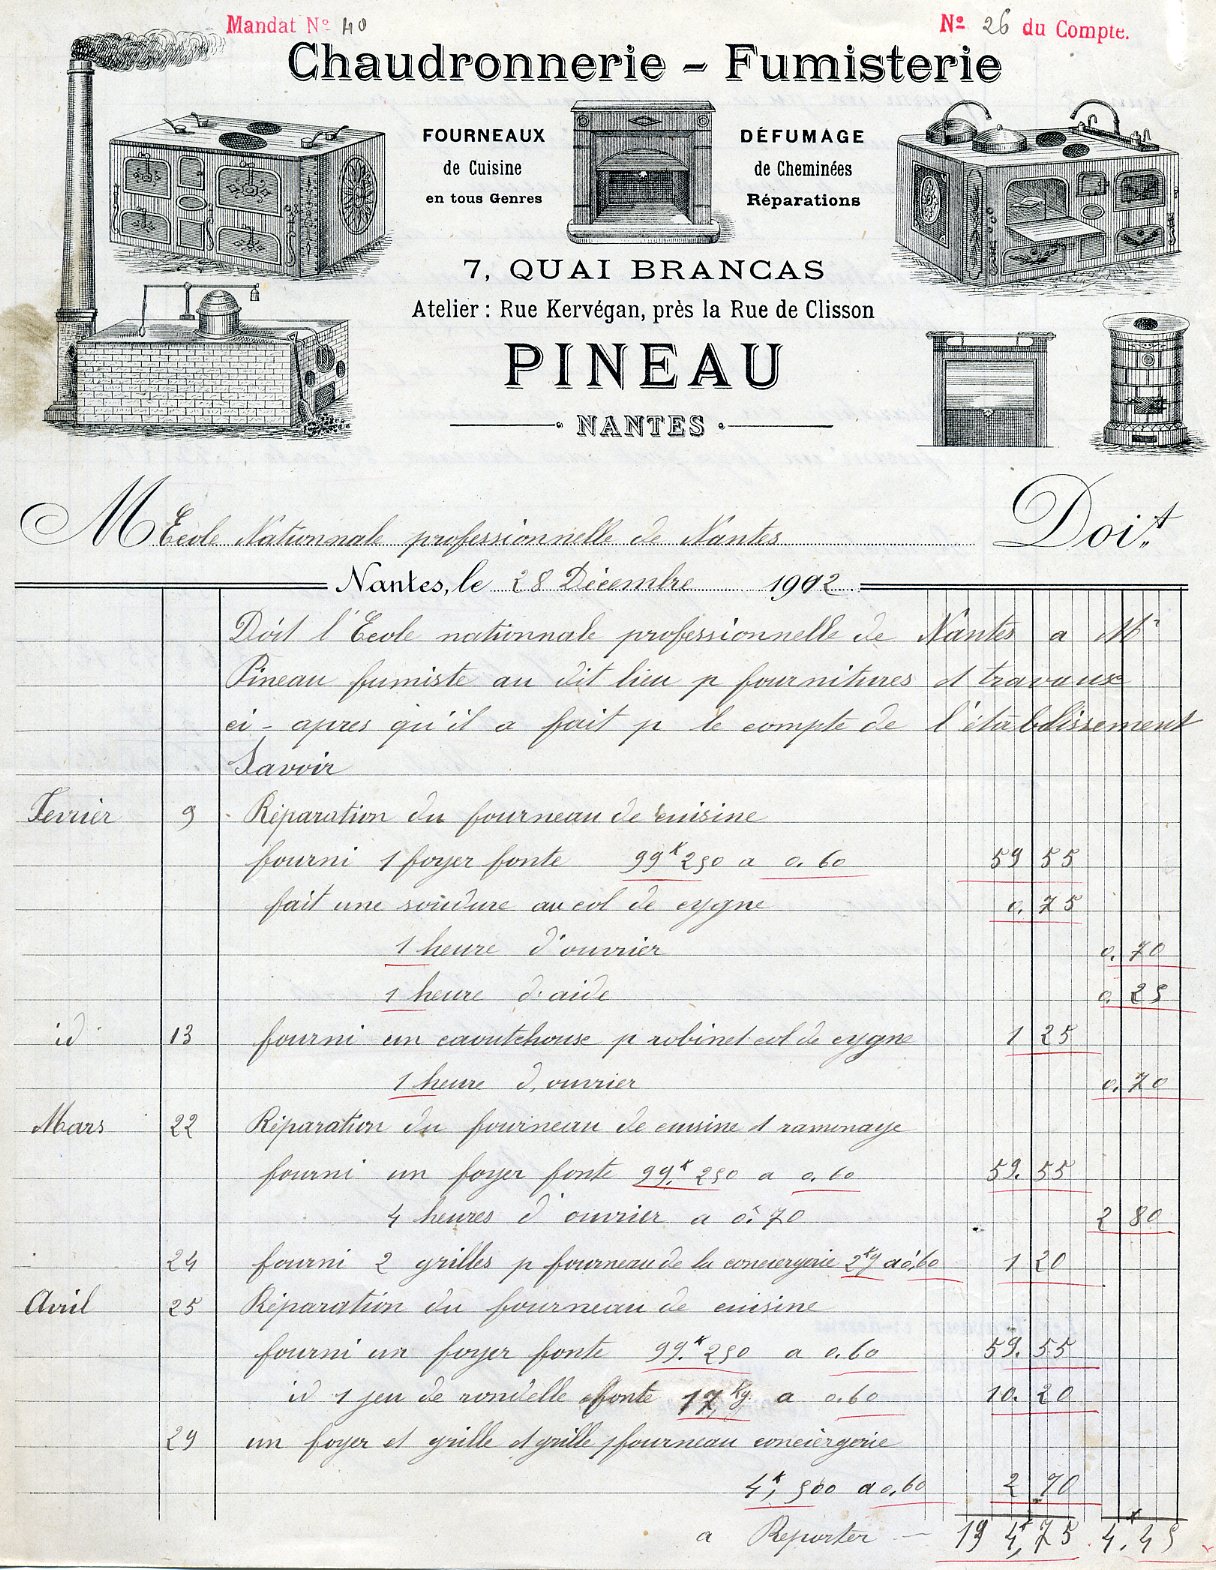 Mandat Nº 40
Nº 26 du Compte.
Chaudronnerie - Fumisterie
FOURNEAUX
de Cuisine
en tous Genres
DÉFUMAGE
de Cheminées
Réparations
7, QUAI BRANCAS
Atelier : Rue Kervégan, près la Rue de Clisson
PINEAU
NANTES
M Ecole Nationnale professionnelle de Nantes Doit
Nantes, le 28 Décembre 1902
Doit l'Ecole nationnale professionnelle de Nantes a Mr
Pineau fumiste au dit lieu p fournitures et travaux
ci-apres qu'il a fait p le compte de l'établissement
Savoir
Fevrier 9 Réparation du fourneau de cuisine
fourni 1 foyer fonte 99k250 a 0.60 59 55
fait une soudure au col de cygne 0.75
1 heure d'ouvrier 0.70
1 heure d'aide 0 25
id 13 fourni un caoutchouse p robinet col de cygne 1 25
1 heure d'ouvrier 0.70
Mars 22 Réparation du fourneau de cuisine et ramonage
fourni un foyer fonte 99k.250 a 0.60 59.55
4 heures d'ouvrier a 0.70 2 80
24 fourni 2 grilles p fourneau de la conciergerie 2kg a 0,60 1 20
Avril 25 Réparation du fourneau de cuisine
fourni un foyer fonte 99.k250 a 0.60 59.55
id 1 jeu de rondelle fonte 17,Kg a 0.60 10.20
29 un foyer et grille et grille p fourneau conciergerie
4k,500 a 0.60 2 70
a Reporter 194,75 4.45